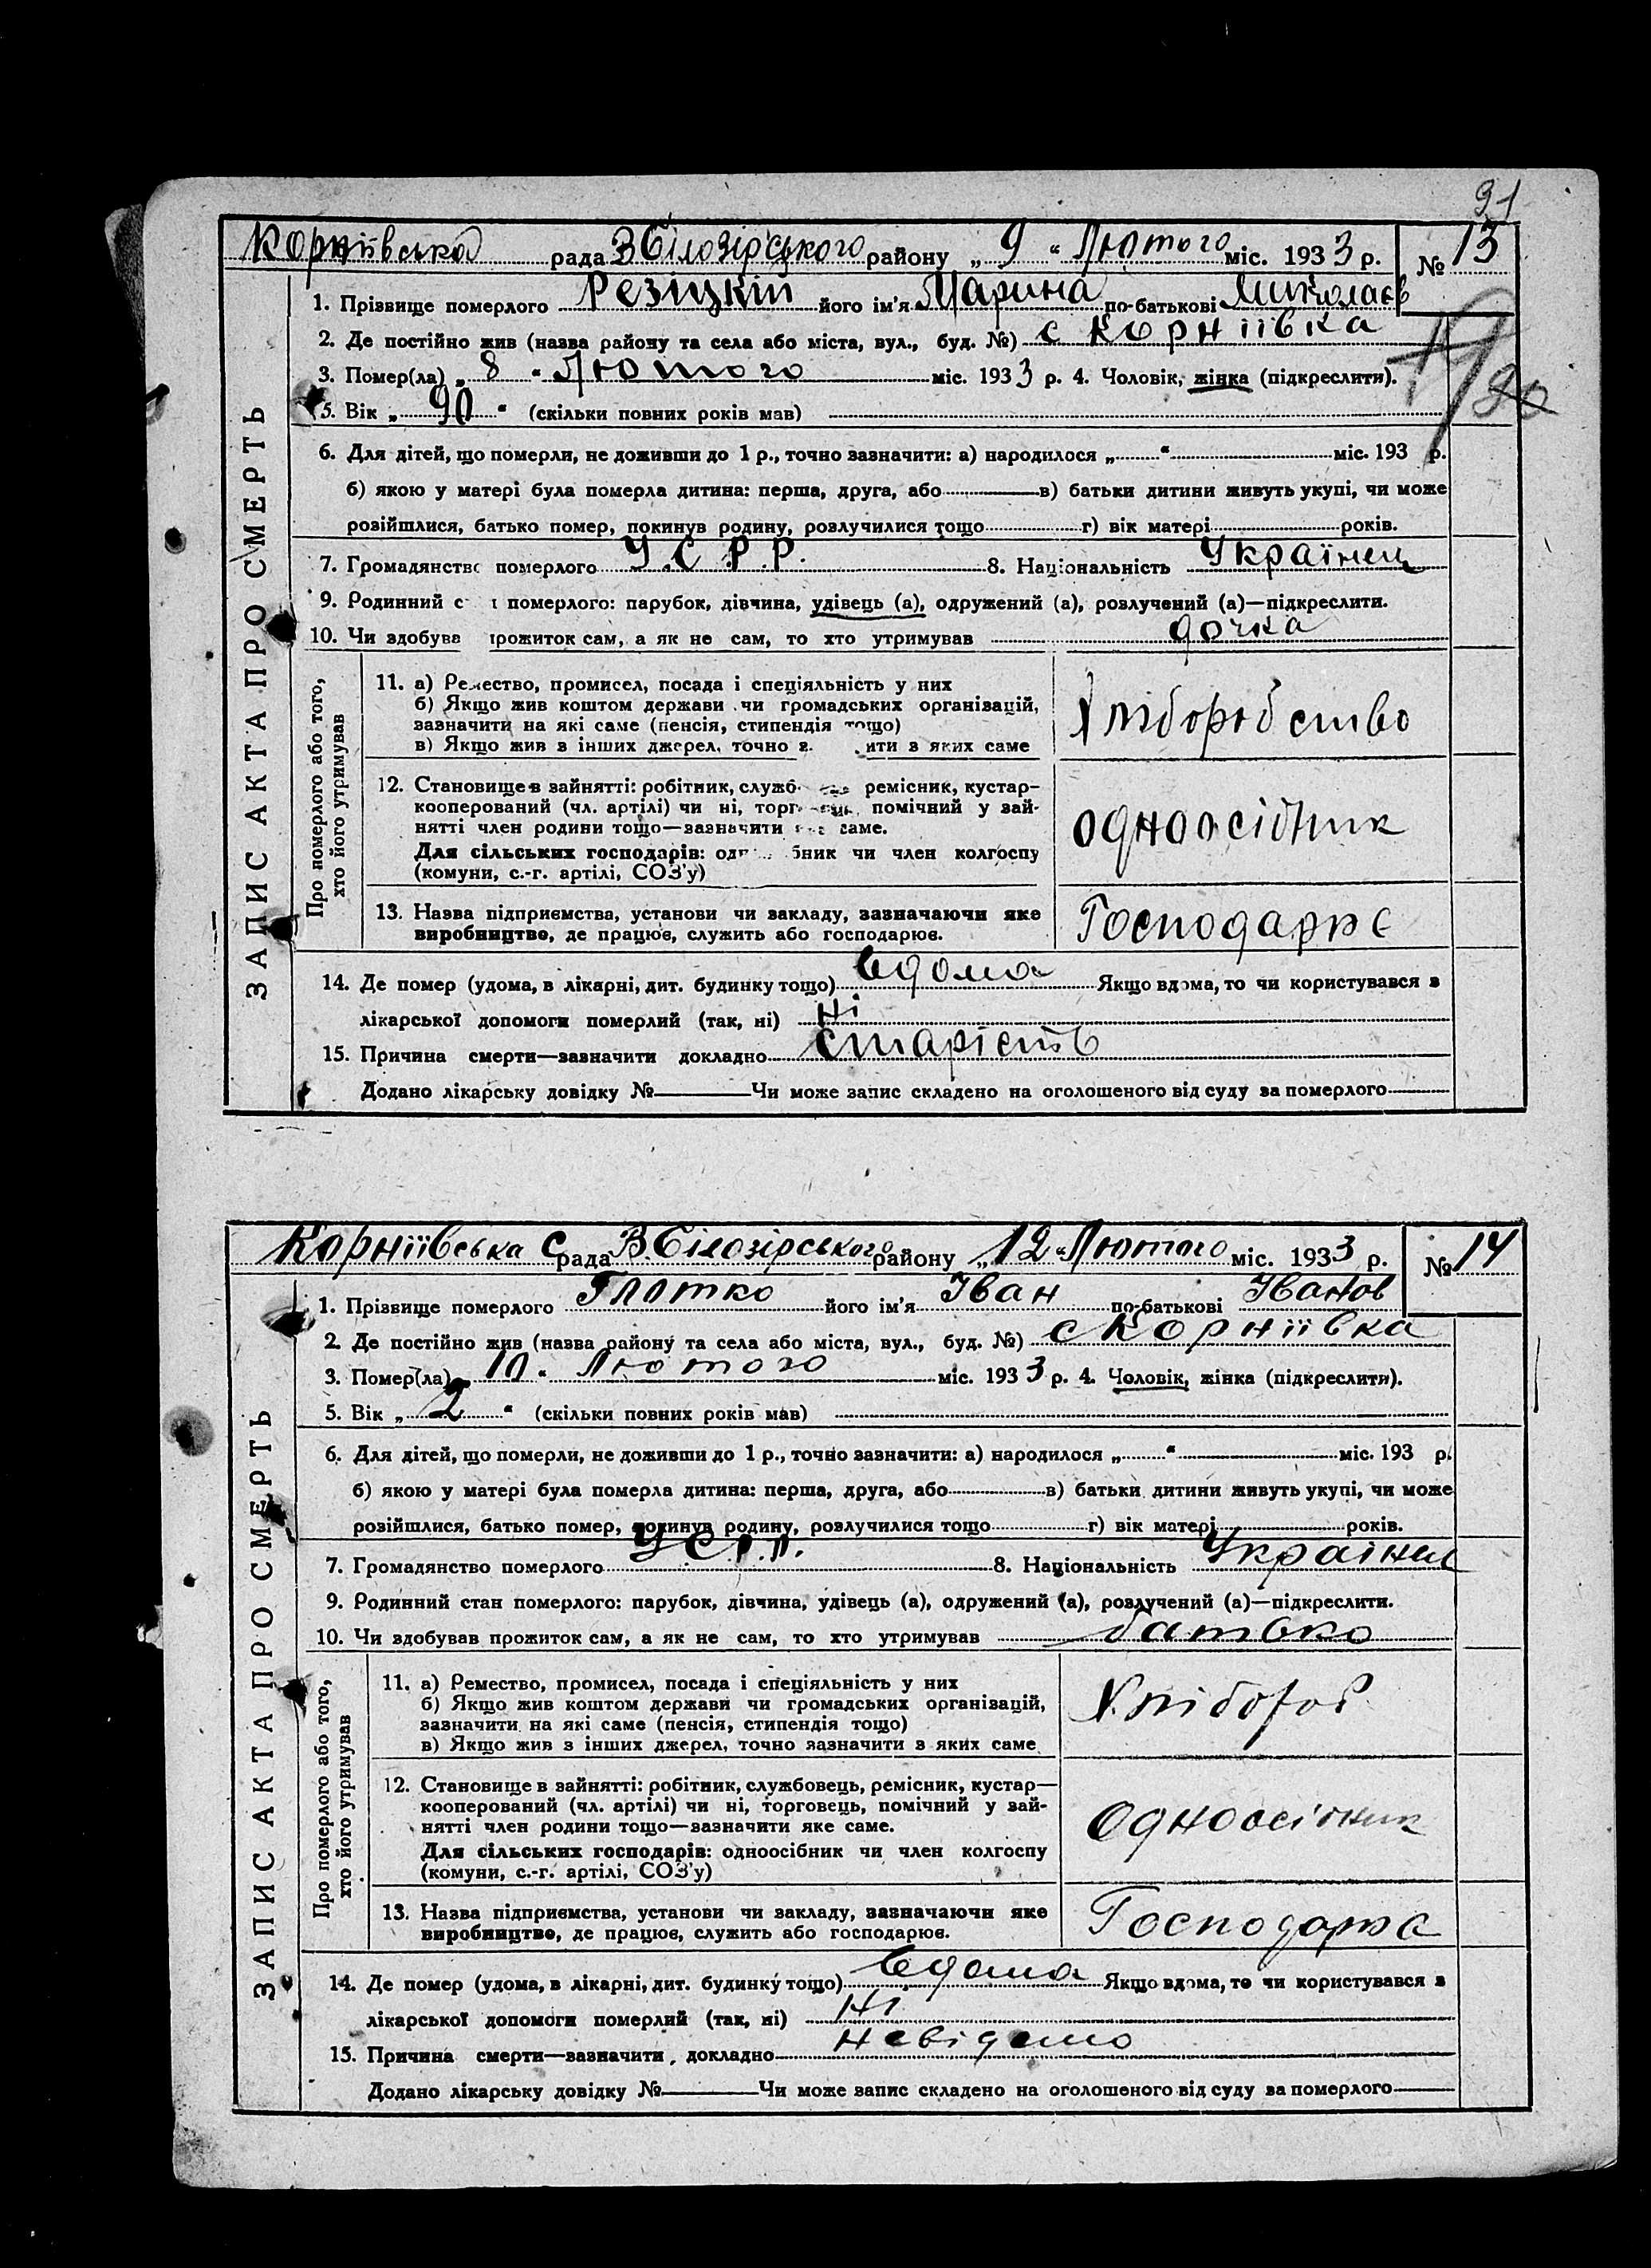 91
Корніївська рада В Білозірського району „ 9 " Лютого міс. 1933 р. № 13
ЗАПИС АКТА ПРО СМЕРТЬ
1. Прізвище померлого Резіцкій його ім'я Марина по-батькові Миколаєв
2. Де постійно жив (назва району та села або міста, вул., буд. №) с Корніївка
3. Помер(ла) „ 8 " Лютого міс. 1933 р. 4. Чоловік, жінка (підкреслити).
5. Вік „ 90 " (скільки повних років мав)
6. Для дітей, що померли, не доживши до 1 р., точно зазначити: а) народилося „ " міс. 193 р.
б) якою у матері була померла дитина: перша, друга, або в) батьки дитини живуть укупі, чи може
розійшлися, батько помер, покинув родину, розлучилися тощо г) вік матері років.
7. Громадянство померлого У.С.Р.Р. 8. Національність Українец
9. Родинний с померлого: парубок, дівчина, удівець (а), одружений (а), розлучений (а)—підкреслити.
10. Чи здобува прожиток сам, а як не сам, то хто утримував дочка
Про померлого або того,
хто його утримував
11. а) Ремество, промисел, посада і спеціяльність у них
б) Якщо жив коштом держави чи громадських організацій,
зазначити на які саме (пенсія, стипендія тощо)
в) Якщо жив з інших джерел, точно з ити з яких саме
Хліборобство
12. Становище в зайнятті: робітник, служб ремісник, кустар—
кооперований (чл. артілі) чи ні, торговець, помічний у зай-
нятті член родини тощо—зазначити яке саме.
Для сільських господарів: од бник чи член колгоспу
(комуни, с.-г. артілі, СОЗ'у)
одноосібник
13. Назва підприємства, установи чи закладу, зазначаючи яке
виробництво, де працює, служить або господарює.
Господарює
14. Де помер (удома, в лікарні, дит. будинку тощо) вдома Якщо вдома, то чи користувався з
лікарської допомоги померлий (так, ні) Ні
15. Причина смерти—зазначити докладно старість
Додано лікарську довідку № Чи може запис складено на оголошеного від суду за померлого
Корніївська с рада В. Білозірського району „ 12 " Лютого міс. 1933 р. № 14
ЗАПИС АКТА ПРО СМЕРТЬ
1. Прізвище померлого Глотко його ім'я Іван по-батькові Іванов
2. Де постійно жив (назва району та села або міста, вул., буд. №) с Корніївка
3. Помер(ла) „ 10 " Лютого міс. 1933 р. 4. Чоловік, жінка (підкреслити).
5. Вік „ 2 " (скільки повних років мав)
6. Для дітей, що померли, не доживши до 1 р., точно зазначити: а) народилося „ " міс. 193 р.
б) якою у матері була померла дитина: перша, друга, або в) батьки дитини живуть укупі, чи може
розійшлися, батько помер, покинув родину, розлучилися тощо г) вік матері років.
7. Громадянство померлого 8. Національність Українец
9. Родинний стан померлого: парубок, дівчина, удівець (а), одружений (а), розлучений (а)—підкреслити.
10. Чи здобував прожиток сам, а як не сам, то хто утримував батько
Про померлого або того,
хто його утримував
11. а) Ремество, промисел, посада і спеціяльність у них
б) Якщо жив коштом держави чи громадських організацій,
зазначити на які саме (пенсія, стипендія тощо)
в) Якщо жив з інших джерел, точно зазначити з яких саме
Хлібороб
12. Становище в зайнятті: робітник, службовець, ремісник, кустар—
кооперований (чл. артілі) чи ні, торговець, помічний у зай-
нятті член родини тощо—зазначити яке саме.
Для сільських господарів: одноосібник чи член колгоспу
(комуни, с.-г. артілі, СОЗ'у)
Одноосібник
13. Назва підприємства, установи чи закладу, зазначаючи яке
виробництво, де працює, служить або господарює.
Господарює
14. Де помер (удома, в лікарні, дит. будинку тощо) вдома Якщо вдома, то чи користувався з
лікарської допомоги померлий (так, ні) Ні
15. Причина смерти—зазначити докладно невідомо
Додано лікарську довідку № Чи може запис складено на оголошеного від суду за померлого